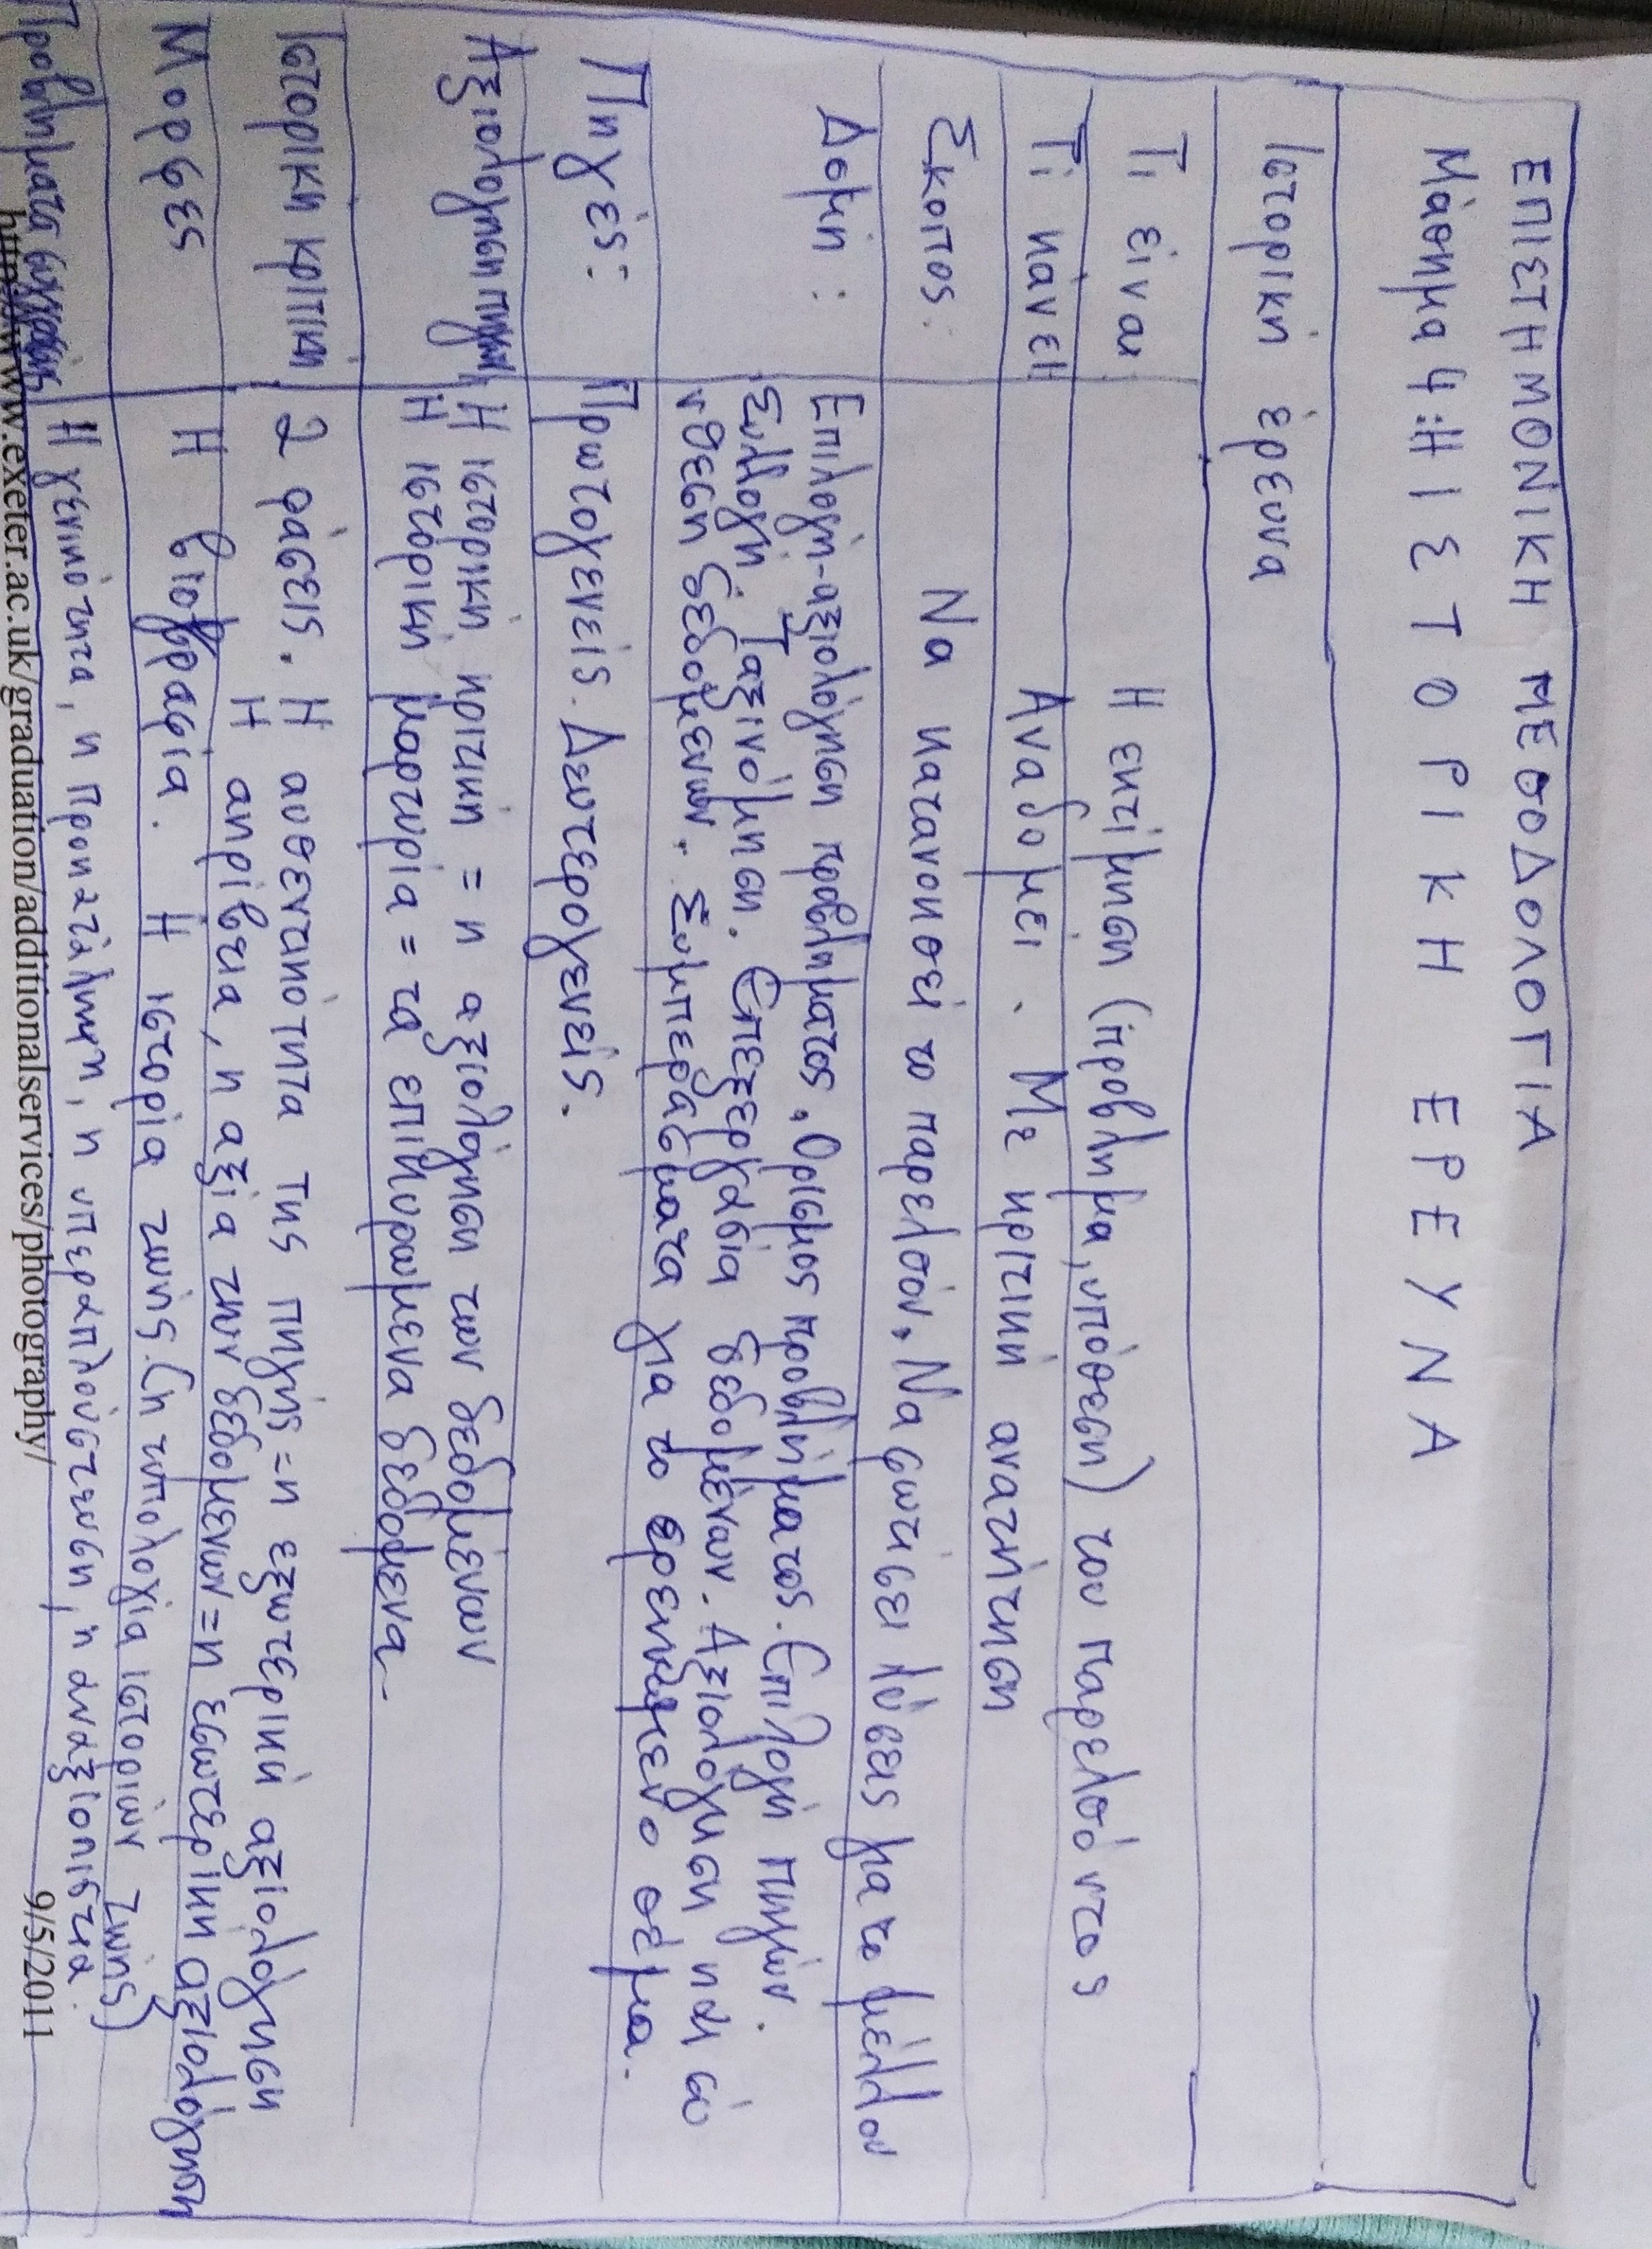 ΕΠΙΣΤΗΜΟΝΙΚΗ ΜΕΘΟΔΟΛΟΓΙΑ
Μάθημα 4: Η ΙΣΤΟΡΙΚΗ ΕΡΕΥΝΑ
Ιστορική έρευνα
Τι είναι Η εξήγηση (προβλήμα, υπόθεση) του παρελθόντος
Τι κάνει Αναδρομεί. Με κριτική αναζήτηση
Σκοπος: Να κατανοείσαι το παρελθόν. Να φωτήσει λύσεις για το μέλλον
Δομή: Επιλογή-αξιολόγηση προβλήματος. Ορισμος προβλήματος. Επιλογή πηγών.
Συλλογή. Ταξινόμηση. Επεξεργασία δεδομένων. Αξιολόγηση και
σύνθεση δεδομένων. Συμπεράσματα για το ερευνώμενο θέμα.
Πηγές: Πρωτογενείς. Δευτερογενείς.
Αξιολόγηση Η ιστορική κριτική = η αξιολόγηση των δεδομένων
Η ιστορική μαρτυρία = τα έγκυρα δεδομένα έρευνας.
Ιστορική κριτική 2 φάσεις. Η αυθεντικότητα της πηγής=η εξωτερική αξιολόγηση
Η ακρίβεια, η αξία των δεδομένων= η εσωτερική αξιολόγηση
Μορφές Η βιογραφία. Η ιστορία των (ς. η τυπολογία ιστορικών πηγών)
Προβλήματα Η γενικότητα, η προκατάληψη, η υπεραπλούστευση, η αναξιοπιστία
http://www.exeter.ac.uk/graduation/additionalservices/photography/ 9/5/2011